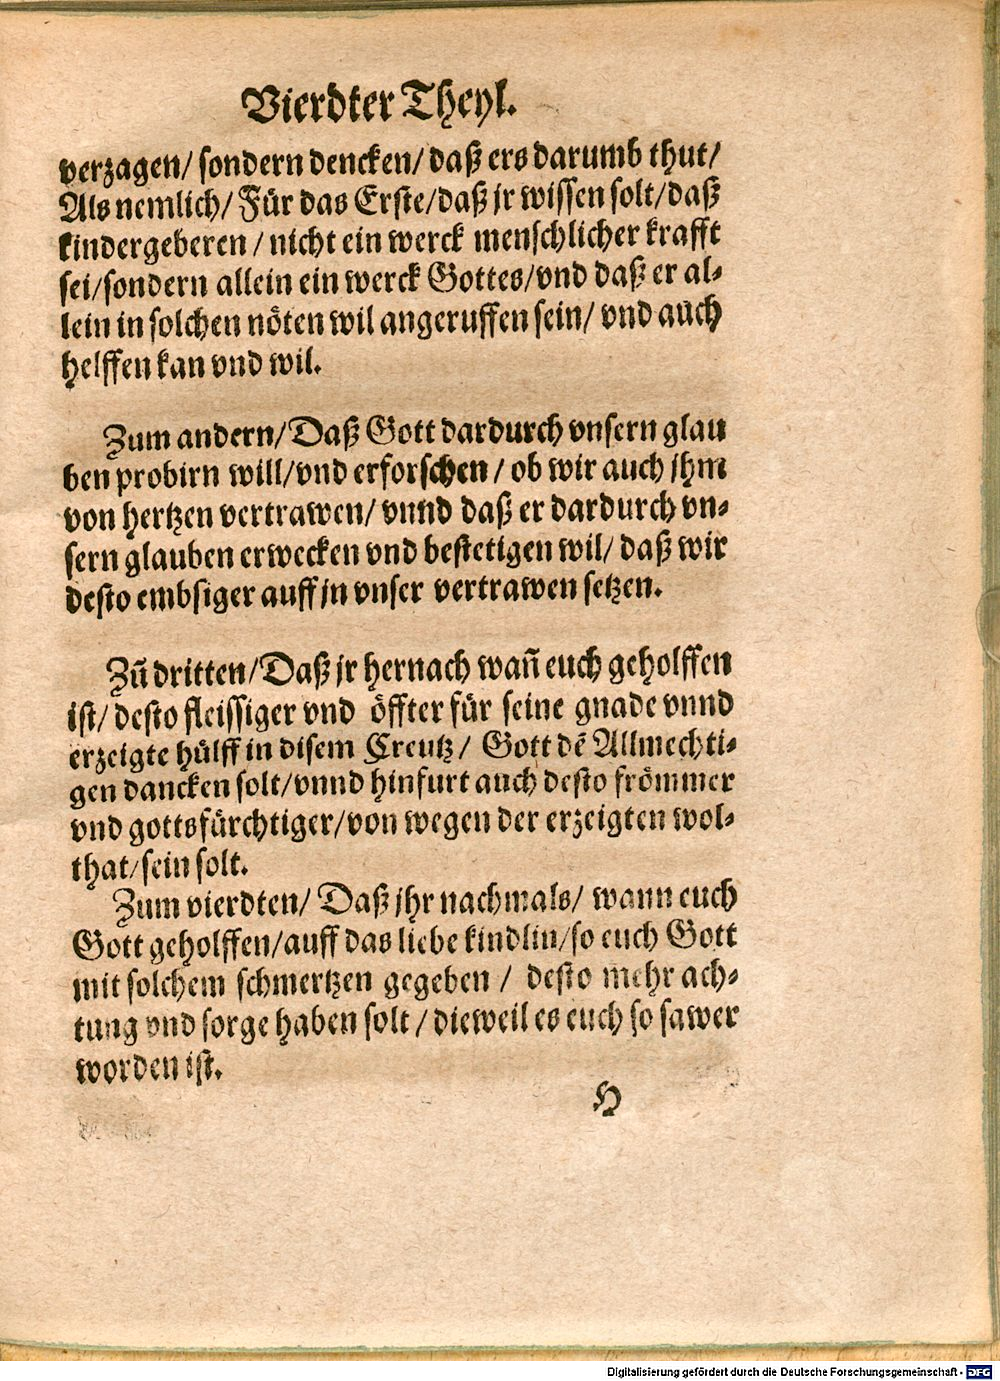 Vierdter Theyl.
verzagen/ sondern dencken/ daß ers darumb thut/
Als nemlich/ Für das Erste/daß jr wissen solt/daß
kindergeberen / nicht ein werck menschlicher krafft
sei/sondern allein ein werck Gottes/vnd daß er al⸗
lein in solchen nöten wil angeruffen sein/ vnd auch
helffen kan vnd wil.
Zum andern/Daß Gott dardurch vnsern glau
ben probirn will/vnd erforschen / ob wir auch jhm
von hertzen vertrawen/ vnnd daß er dardurch vn⸗
sern glauben erwecken vnd bestetigen wil/ daß wir
desto embsiger auff jn vnser vertrawen setzen.
Zũ dritten/Daß jr hernach wañ euch geholffen
ist/ desto fleissiger vnd öffter für seine gnade vnnd
erzeigte hülff in disem Creutz/ Gott dẽ Allmechti⸗
gen dancken solt/vnnd hinfurt auch desto frömmer
vnd gottsfürchtiger/von wegen der erzeigten wol⸗
that/sein solt.
Zum vierdten/ Daß jhr nachmals/ wann euch
Gott geholffen/auff das liebe kindlin/so euch Gott
mit solchem schmertzen gegeben / desto mehr ach⸗
tung vnd sorge haben solt / dieweil es euch so sawer
worden ist.
H
Digitalisierung gefördert durch die Deutsche Forschungsgemeinschaft - DFG